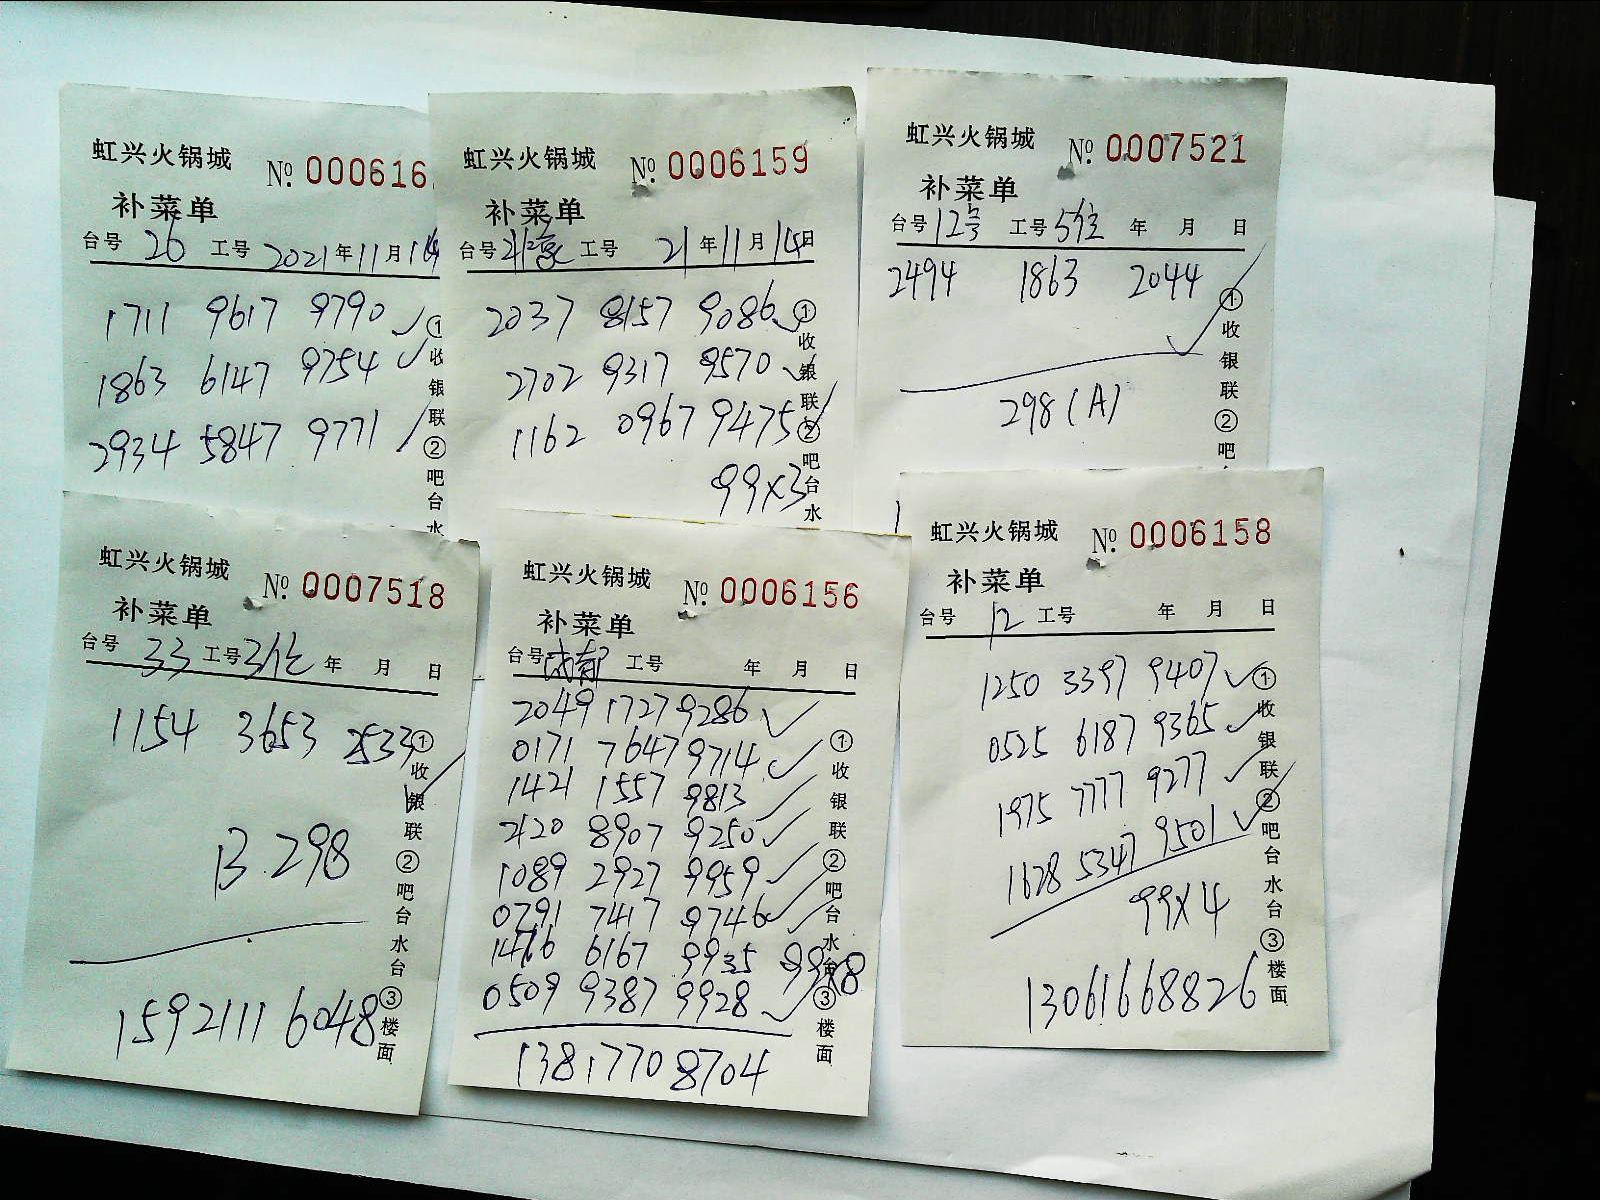 虹兴火锅城 № 000616
补菜单
台号 26 工号 2021年11月14
1711 9617 9790
1863 6147 9754
2934 5847 9771
①收银联②吧台水
虹兴火锅城 № 0006159
补菜单
台号 工号 21年11月14日
2037 8157 9086
2702 9317 9570
1162 0967 9475
99×3
①收银联②吧台水
虹兴火锅城 № 0007521
补菜单
台号 12号 工号 5位 年 月 日
2494 1863 2044
298(A)
①收银联②吧
虹兴火锅城 № 0007518
补菜单
台号 33 工号 3位 年 月 日
1154 3653 2533
B 298
15921116048
①收银联②吧台水台③楼面
虹兴火锅城 № 0006156
补菜单
台号 成都 工号 年 月 日
2049 1727 9286
0171 7647 9714
1421 1557 9813
2120 8907 9250
1089 2927 9959
0791 7417 9746
1466 6167 9935 99×8
0509 9387 9928
13817708704
①收银联②吧台水台③楼面
虹兴火锅城 № 0006158
补菜单
台号 12 工号 年 月 日
1250 3397 9407
0525 6187 9365
1975 7777 9277
1628 5347 9501
99×4
13061668826
①收银联②吧台水台③楼面